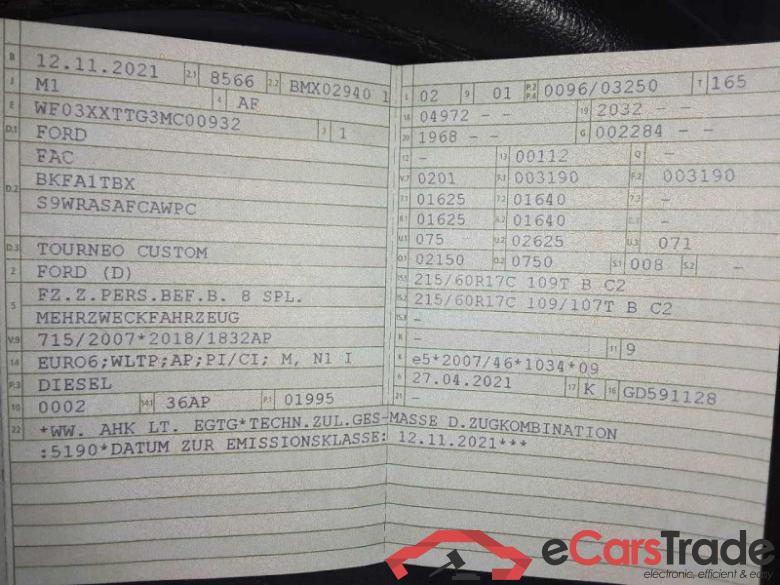 B 12.11.2021 2.1 8566 2.2 BMX02940 1
J M1 4 AF
E WF03XXTTG3MC00932 3 1
D.1 FORD
FAC
D.2 BKFA1TBX
S9WRASAFCAWPC
D.3 TOURNEO CUSTOM
2 FORD (D)
5 FZ.Z.PERS.BEF.B. 8 SPL.
MEHRZWECKFAHRZEUG
V.9 715/2007*2018/1832AP
14 EURO6;WLTP;AP;PI/CI; M, N1 I
P.3 DIESEL
10 0002 14.1 36AP P.1 01995
22 *WW. AHK LT. EGTG*TECHN.ZUL.GES-MASSE D.ZUGKOMBINATION
:5190*DATUM ZUR EMISSIONSKLASSE: 12.11.2021***
L 02 9 01 P.2 P.4 0096/03250 T 165
18 04972 - - 19 2032 - -
20 1968 - - G 002284 - -
12 - 13 00112 Q -
V.7 0201 F.1 003190 F.2 003190
7.1 01625 7.2 01640 7.3 -
8.1 01625 8.2 01640 8.3 -
U.1 075 U.2 02625 U.3 071
O.1 02150 O.2 0750 S.1 008 S.2 -
15.1 215/60R17C 109T B C2
15.2 215/60R17C 109/107T B C2
15.3 -
R - 11 9
K e5*2007/46*1034*09
6 27.04.2021 17 K 16 GD591128
21 -
eCarsTrade
electronic, efficient &